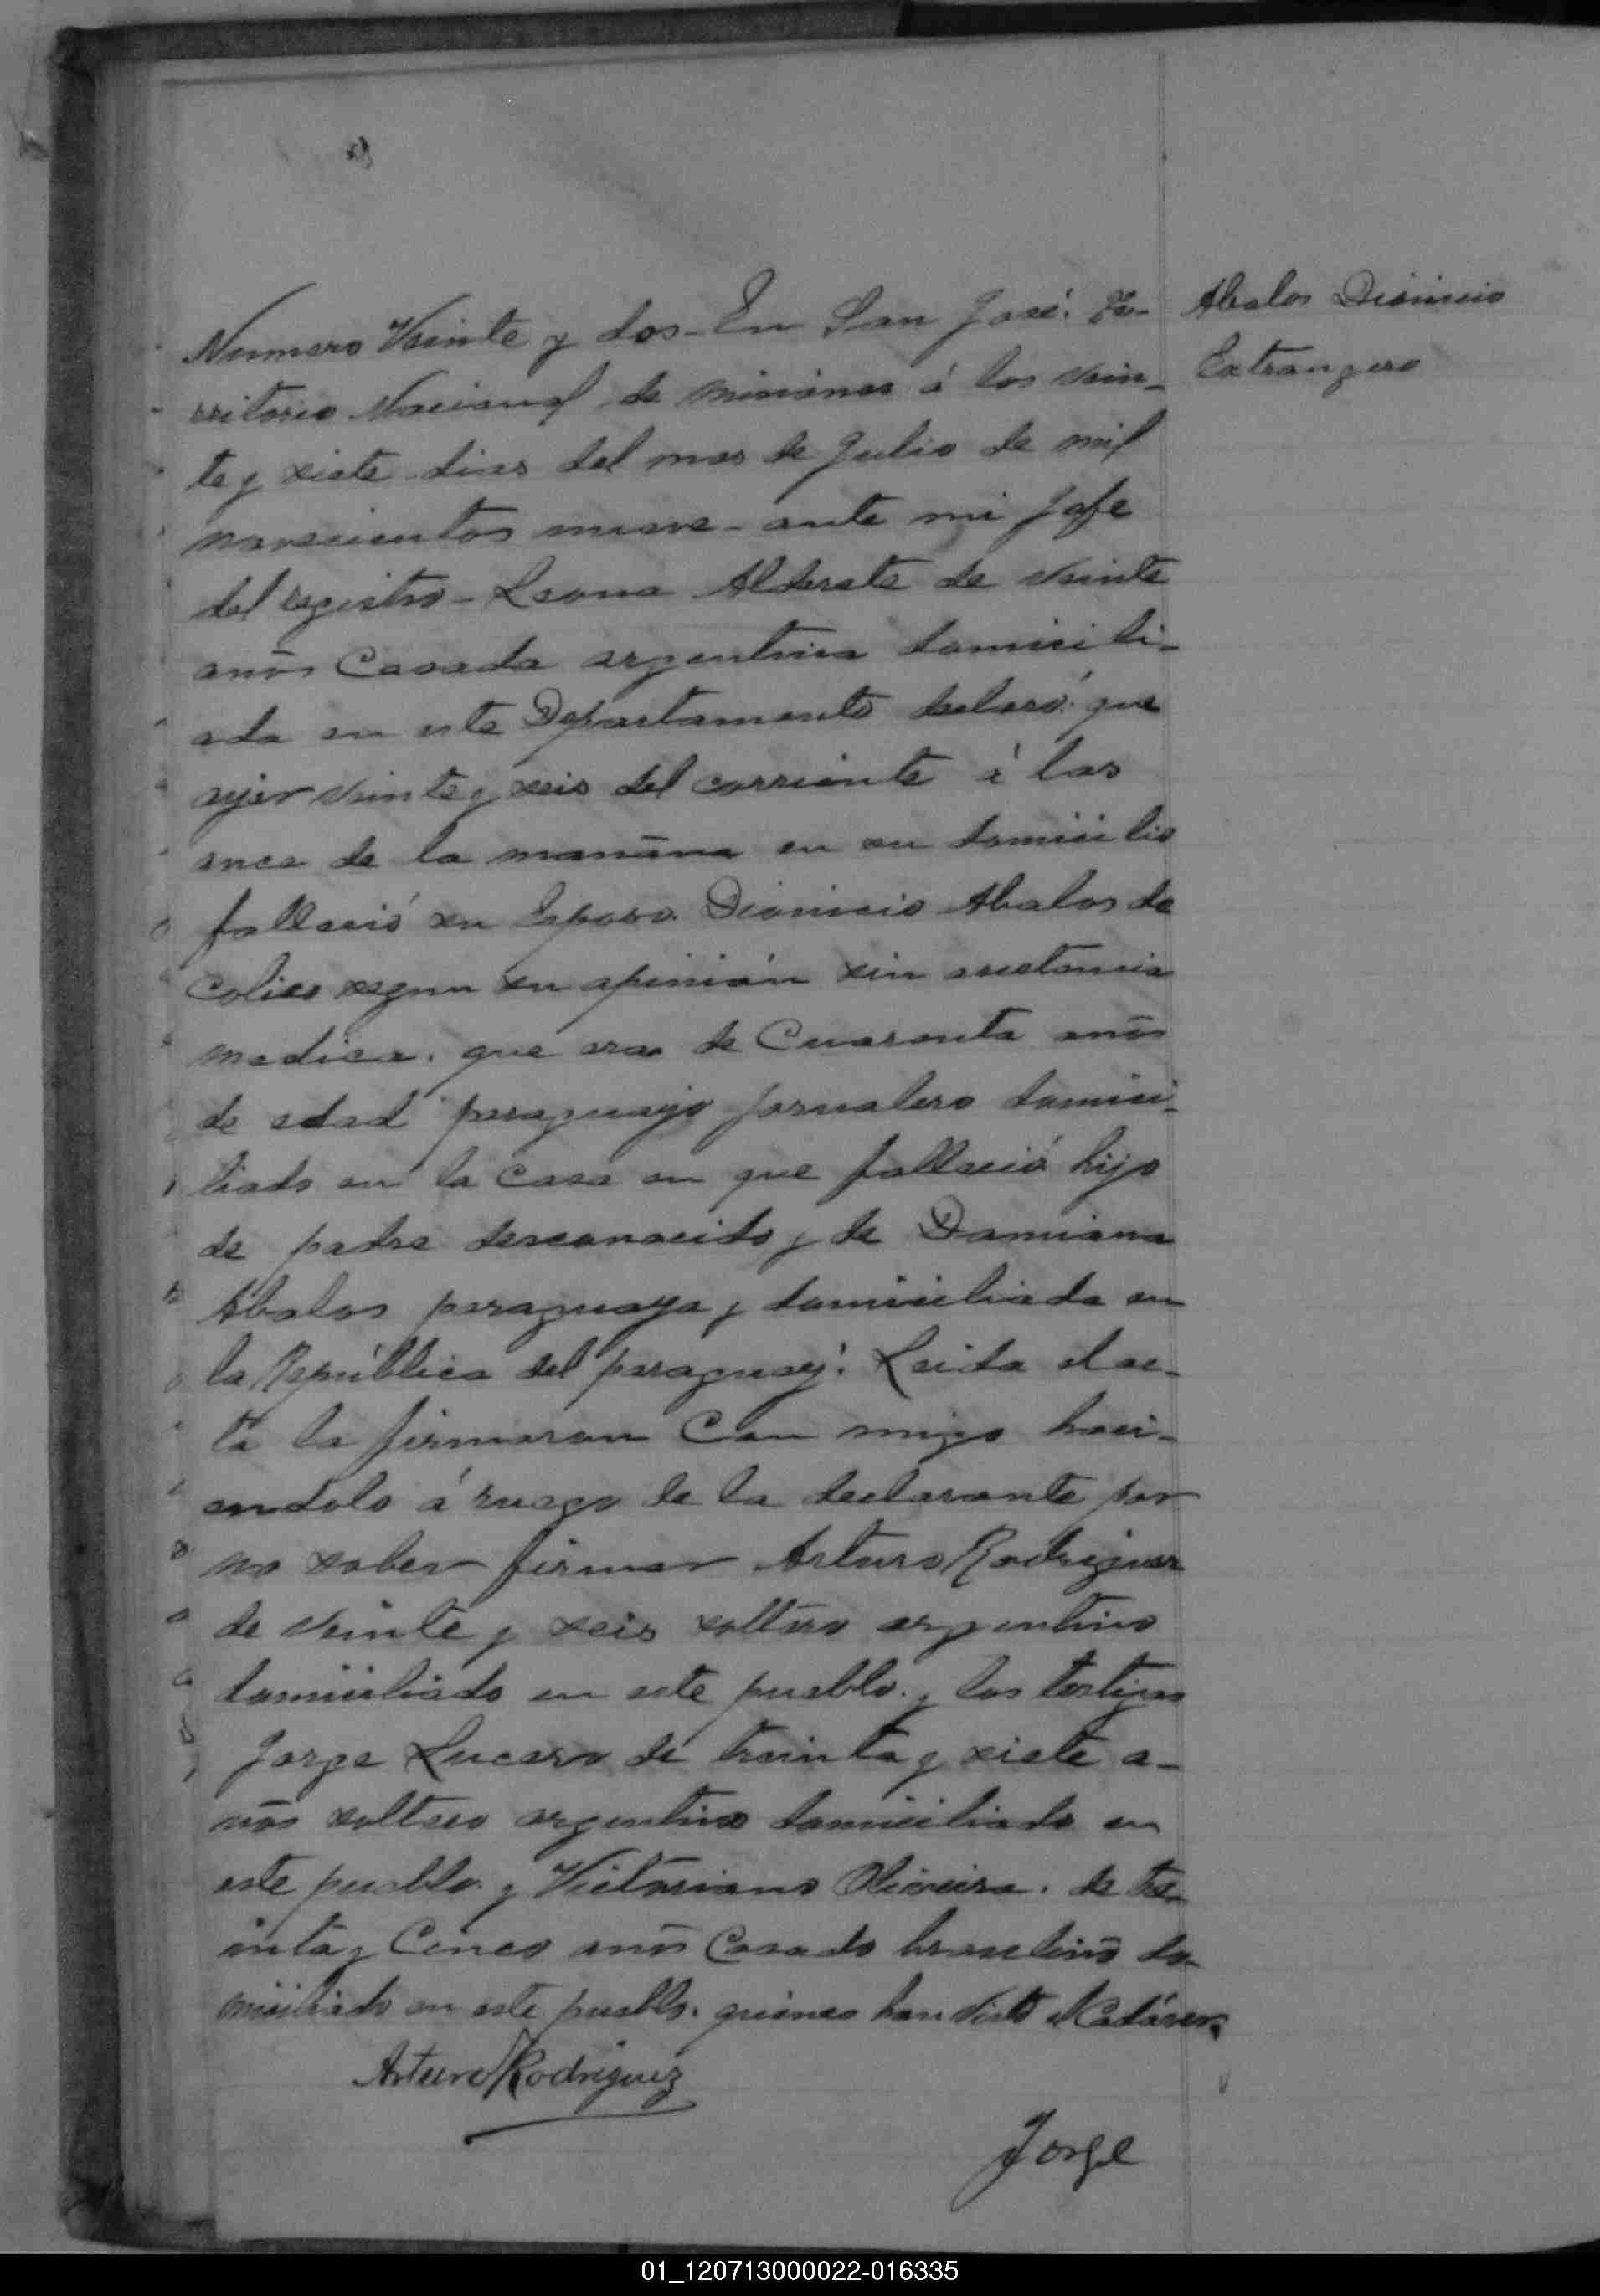 Abalos Dionicio
Extrangero
Numero Veinte y dos - En San José. Te-
rritorio Nacional de misiones á los vein-
te y siete dias del mes de Julio de mil
novecientos nueve - ante mi Jefe
del registro - Leona Alderete de veinte
años Casada argentina domicili-
ada en este Departamento declaró: que
ayer veinte y seis del corriente á las
once de la mañana en su domicilio
falleció su Esposo Dionicio Abalos de
Colico segun su opinión sin asistencia
medica. que era de Cuarenta años
de edad paraguayo jornalero domici-
liado en la Casa en que falleció hijo
de padre desconocido y de Damiana
Abalos paraguaya y domiciliada en
la República del paraguay: Leida el ac-
ta la firmaron Con migo haci-
endolo á ruego de la declarante por
no saber firmar Arturo Rodriguez
de veinte y seis soltero argentino
domiciliado en este pueblo. y los testigos
Jorge Lucero de treinta y siete a-
ños soltero argentino domiciliado en
este pueblo. y Victoriano Oliveira. de tre-
inta y Cinco años Casado brasilero do-
miciliado en este pueblo. quienes han visto el Cadáver.
Arturo Rodriguez
Jorge
01_120713000022-016335